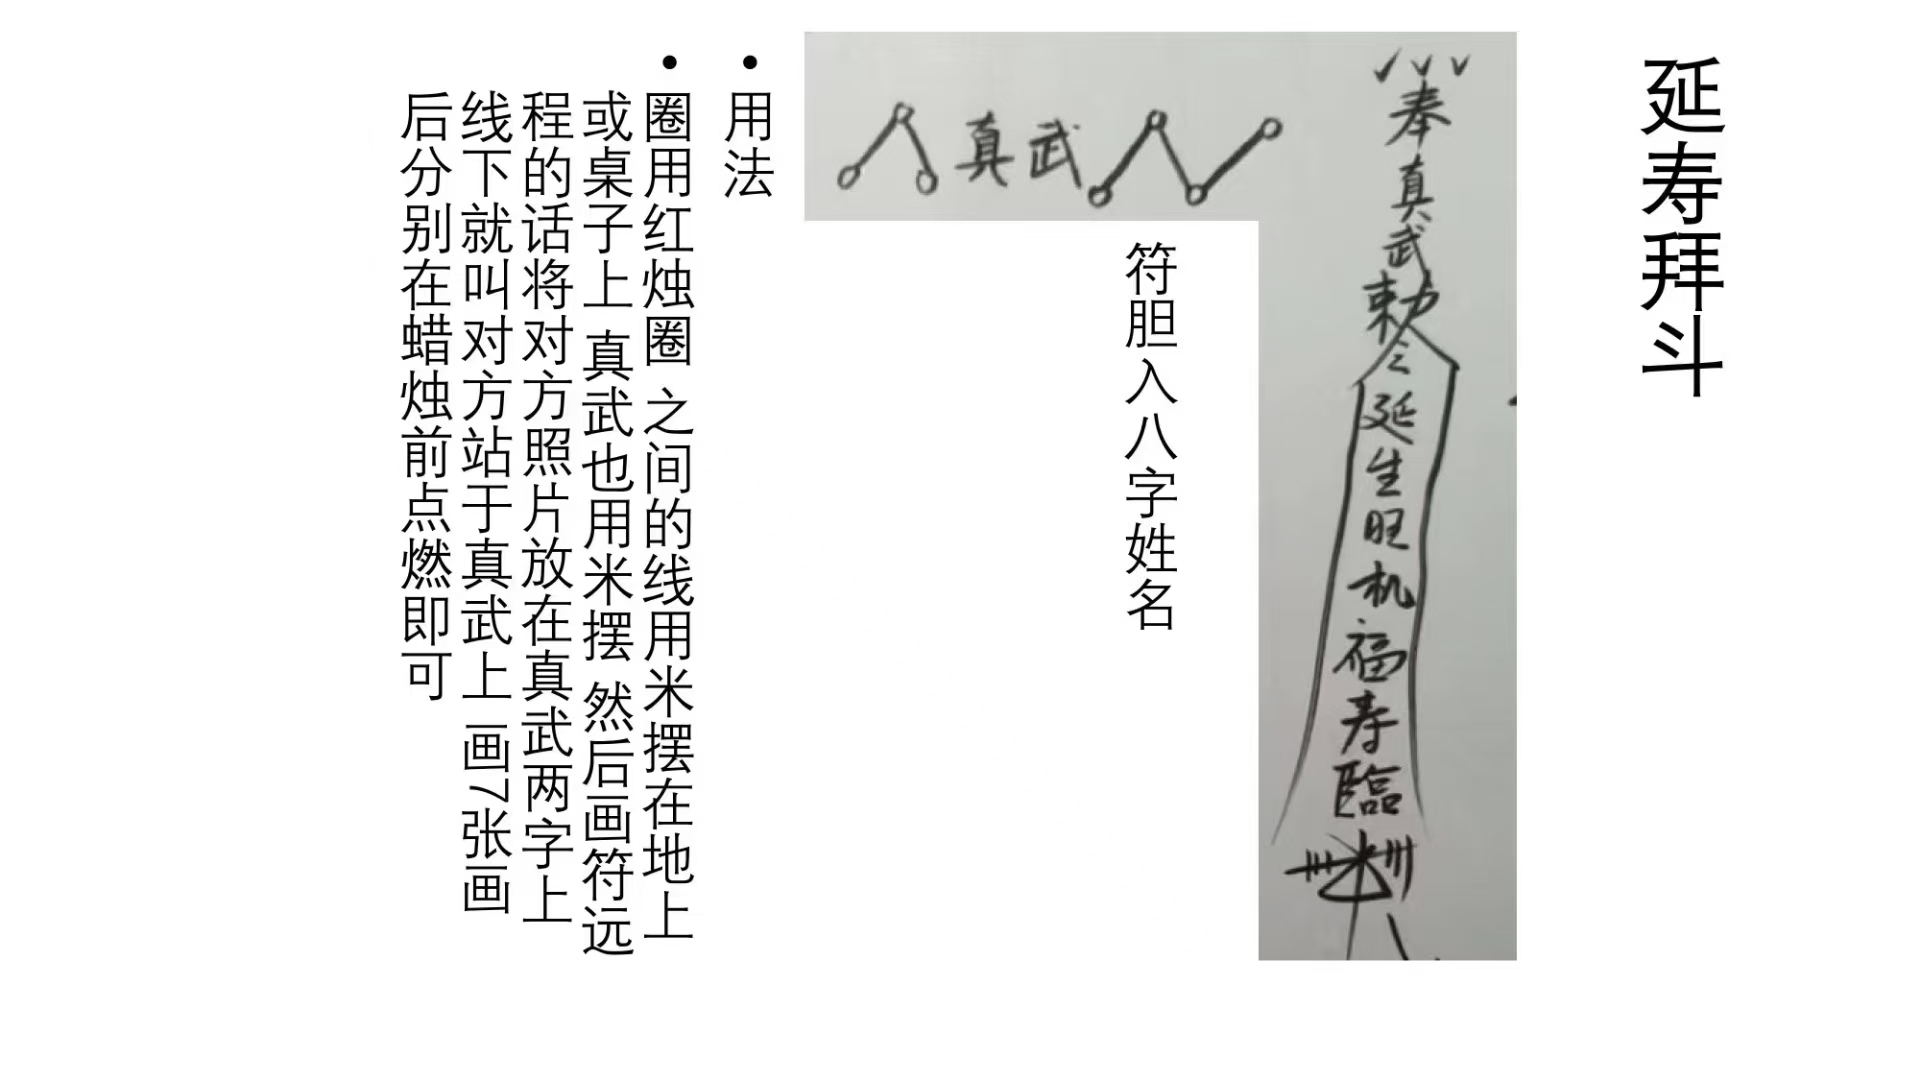 延寿拜斗
奉真武敕令延生旺机福寿臨
真武
符胆入八字姓名
• 用法
• 圈用红烛圈 之间的线用米摆在地上
或桌子上 真武也用米摆 然后画符远
程的话将对方照片放在真武两字上
线下就叫对方站于真武上 画7张画
后分别在蜡烛前点燃即可